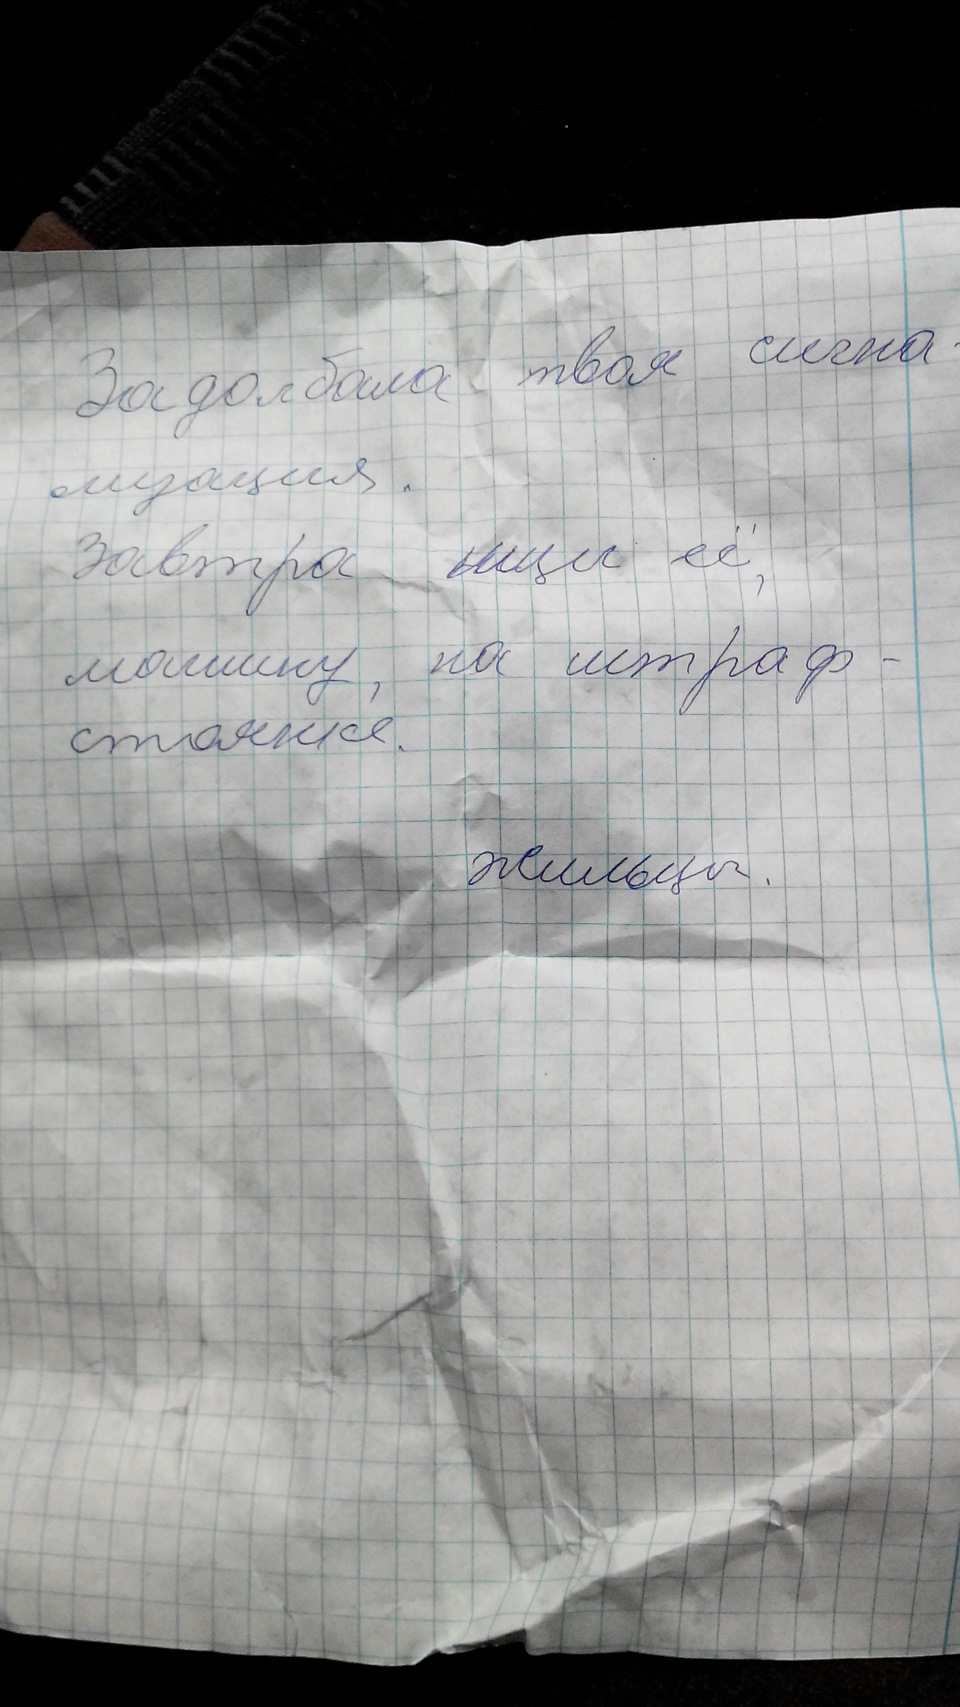 Задолбала твоя сигна-
лизация.
Завтра ищи её,
машину, на штраф-
стоянке.
Жильцы.